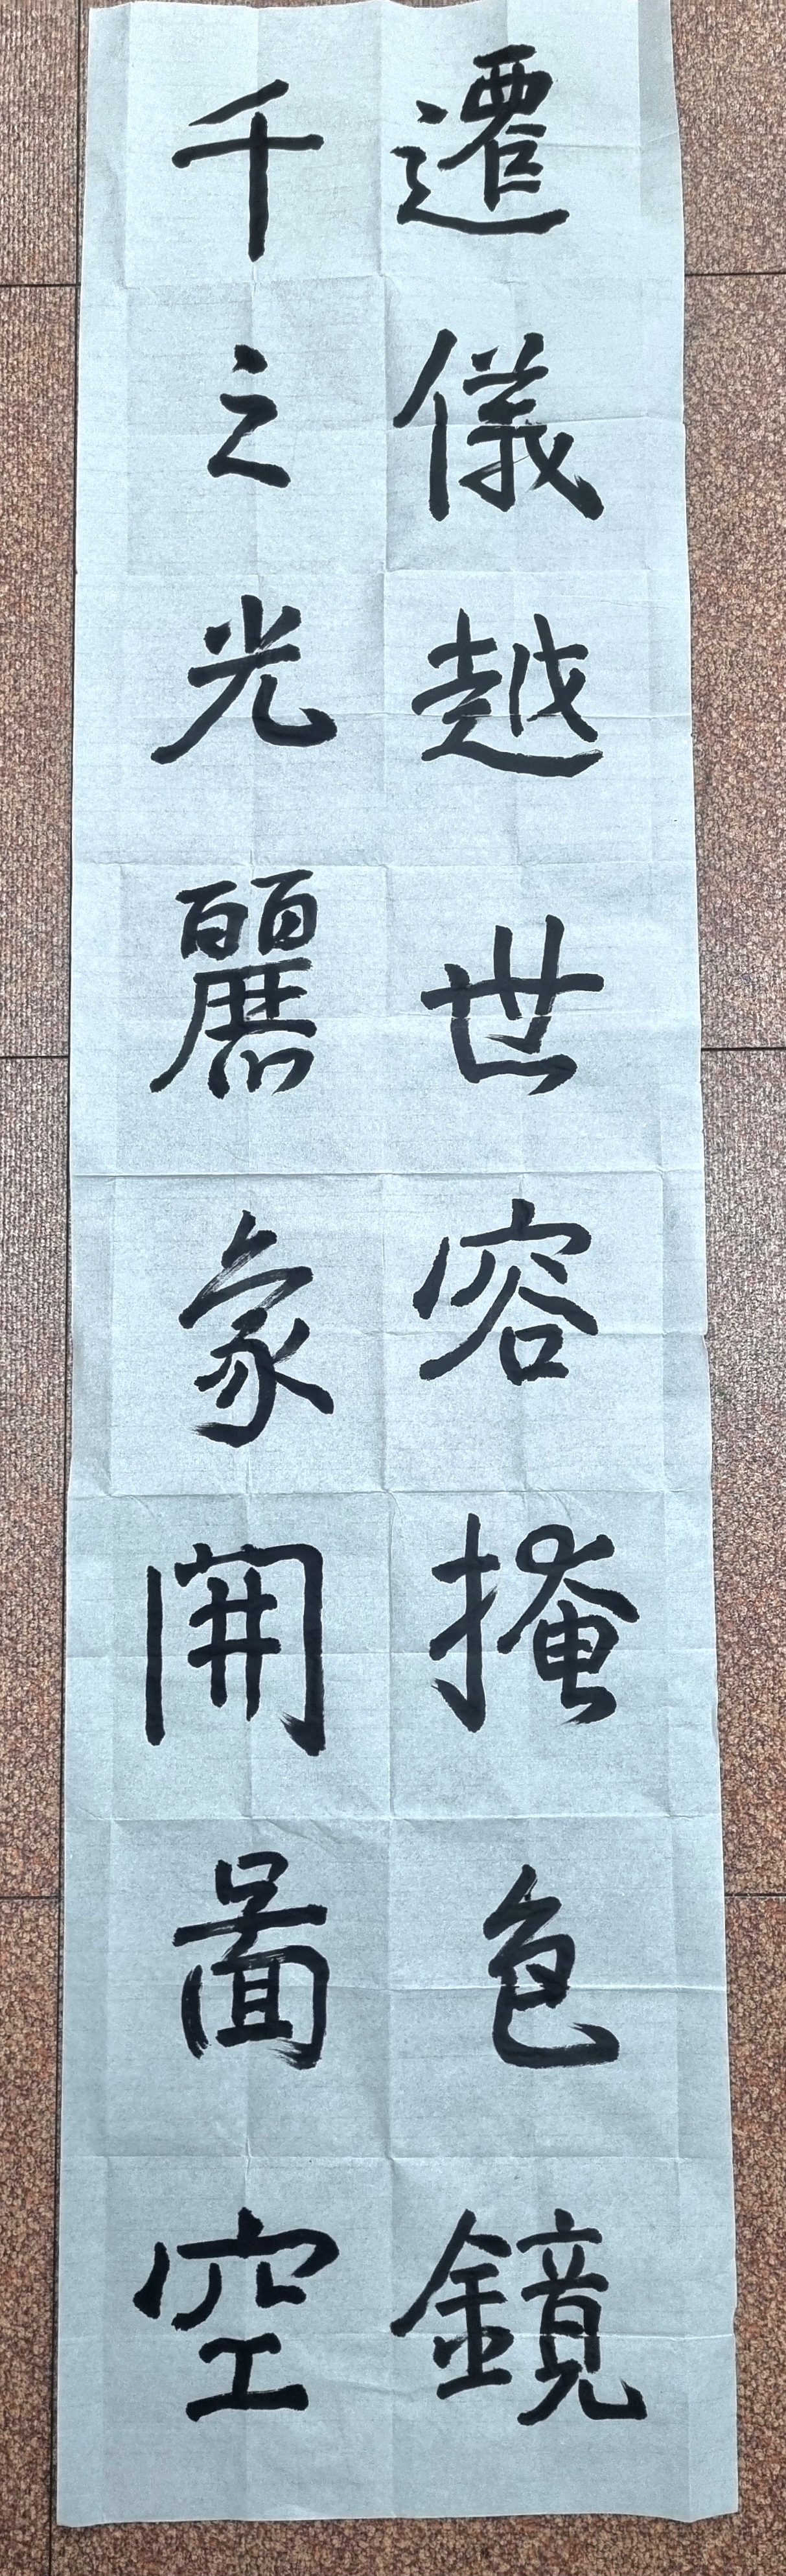 遷儀越世容掩色鏡
千之光麗象開圖空